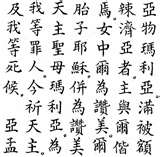 亞物瑪利亞滿被額
辣濟亞者主與爾偕
焉。女中爾為讚美爾
胎子耶穌併為讚美。
天主聖母瑪利亞為
我等罪人。今祈天主
及我等死候。亞孟